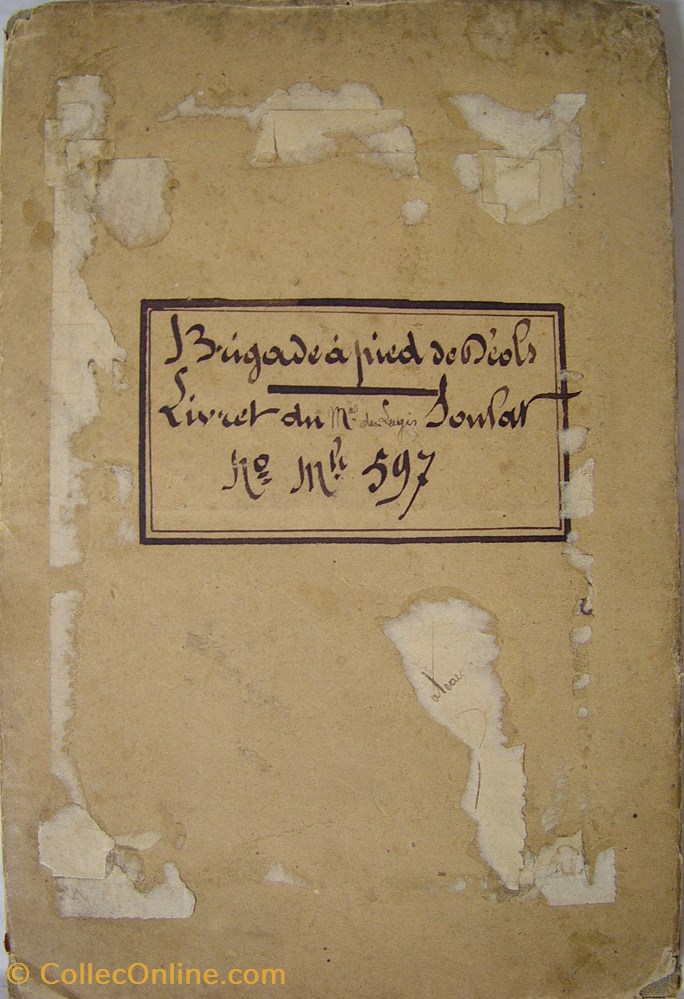 Brigade à pied de Déols
Livret du Mal des Logis Soulat
No Mle 597
© CollecOnline.com